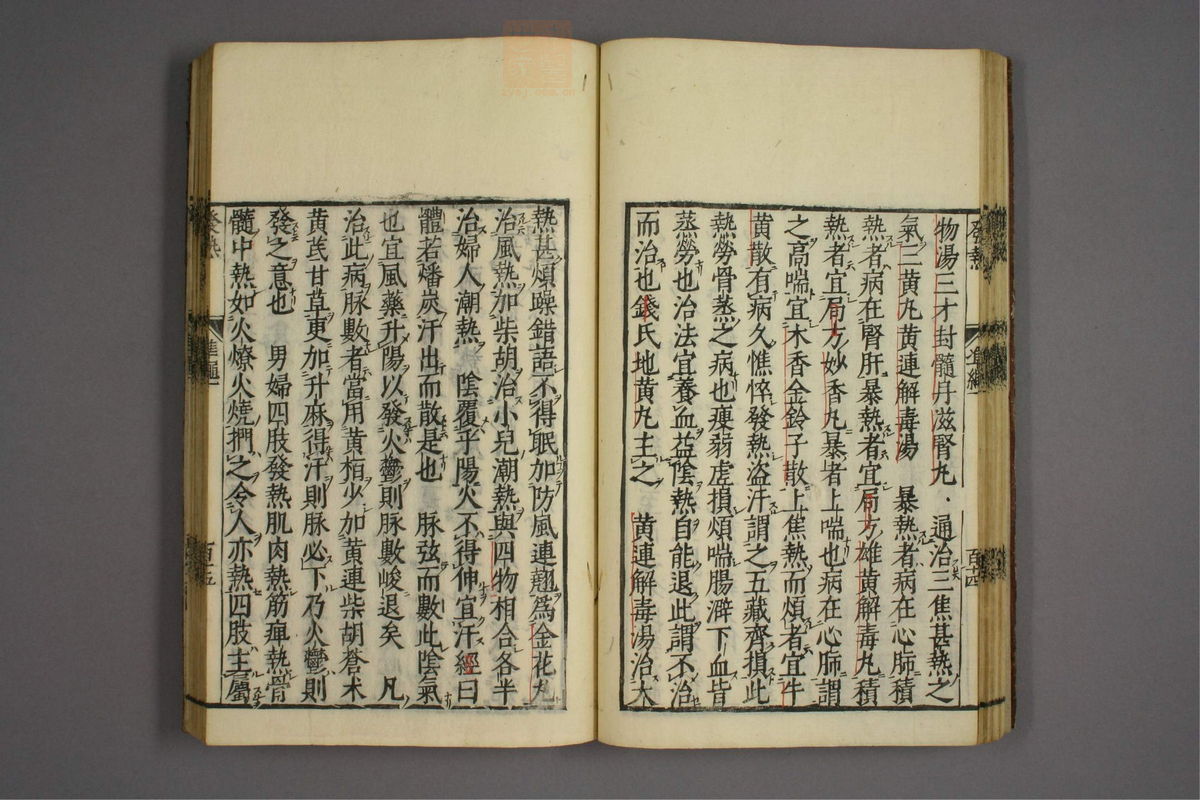 物湯三才封髓丹滋腎丸．通治三焦甚熱之
氣三黄丸黄連解毒湯　暴熱者病在心肺積
熱者病在腎肝暴熱者宜局方雄黄解毒丸積
熱者宜局方妙香丸暴者上喘也病在心肺謂
之高喘宜木香金鈴子散上焦熱而煩者宜牛
黄散有病久憔悴發熱盗汗謂之五藏齊損此
熱勞骨蒸之病也瘦弱虚損煩喘腸澼下血皆
蒸勞也治法宜養血益陰熱自能退此謂不治
而治也錢氏地黄丸主之　黄連解毒湯治大
百四
熱甚煩躁錯語不得眠加防風連翹爲金花丸
治風熱加柴胡治小兒潮熱與四物相合各半
治婦人潮熱　陰覆乎陽火不得伸宜汗經曰
體若燔炭汗出而散是也　脉弦而數此陰氣
也宜風藥升陽以發火鬱則脉數峻退矣　凡
治此病脉數者當用黄栢少加黄連柴胡蒼朮
黄芪甘草更加升麻得汗則脉必下乃火鬱則
發之意也　男婦四肢發熱肌肉熱筋痺熱骨
髓中熱如火燎火燒捫之令人亦熱四肢主屬
發熱
百十五